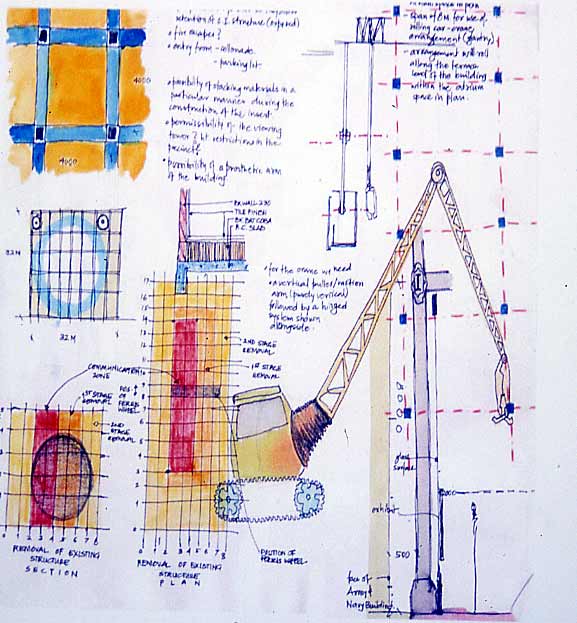 retention of S.I. structure (exposed)
• for escapes?
• entry from - collonade.
- parking lot.
• possibility of stacking materials in a
particular manner during the
construction of the insert.
• permissability of the viewing
tower? ht restrictions in the
precinct?
• possibility of a prosthetic arm
of the building
span of 8M for we.d.
rolling car-crane
arrangement (gantry)
• arrangement will roll
along the terrace
level of the building
within the atrium
space in plan.
4000
4000
BK WALL 230
TILE FINISH
BK BAT COBA
R.C. SLAB
32M
32M
• for the crane we need
• a vertical puller/motion
arm (purely vertical)
followed by a hinged
system shown
alongside.
17
16
15
14
13
12
11
10
9
8
7
6
5
4
3
2
1
2ND STAGE
REMOVAL
1ST STAGE
REMOVAL
COMMUNICATION
ZONE
1ST STAGE
REMOVAL
POS.
OF
FERRIS
WHEEL
2ND
STAGE
REMOVAL
5
4
3
2
1
0 1 2 3 4 5 6 7 8
REMOVAL OF EXISTING
STRUCTURE
SECTION
0 1 2 3 4 5 6 7 8
REMOVAL OF EXISTING
STRUCTURE
PLAN
POSITION OF
FERRIS WHEEL
glass
surface
exhibit
500
face of
Army &
Navy Building